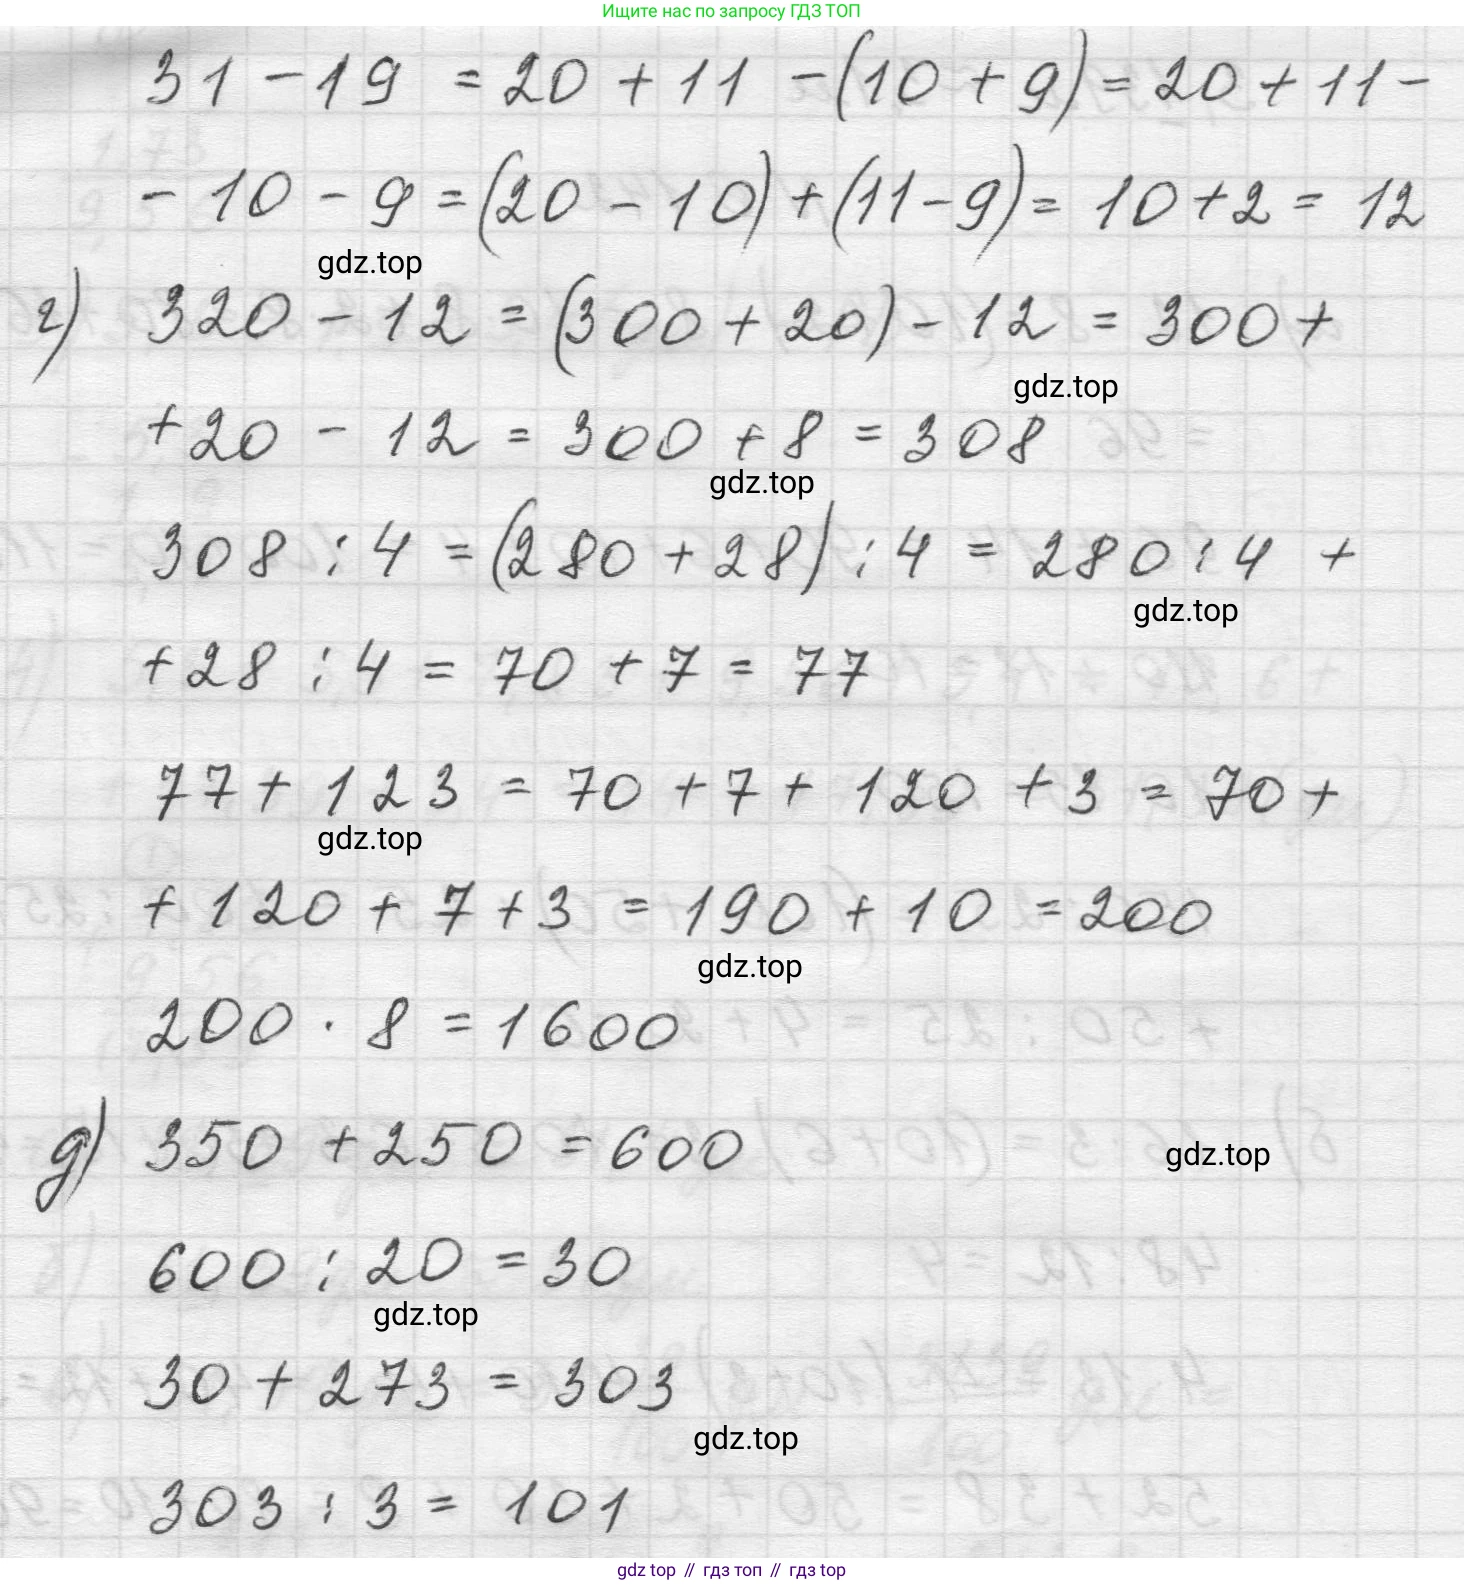 Ищите нас по запросу ГДЗ ТОП
31 - 19 = 20 + 11 - (10 + 9) = 20 + 11 -
- 10 - 9 = (20 - 10) + (11 - 9) = 10 + 2 = 12
gdz.top
г) 320 - 12 = (300 + 20) - 12 = 300 +
gdz.top
+ 20 - 12 = 300 + 8 = 308
gdz.top
308 : 4 = (280 + 28) : 4 = 280 : 4 +
gdz.top
+ 28 : 4 = 70 + 7 = 77
77 + 123 = 70 + 7 + 120 + 3 = 70 +
gdz.top
+ 120 + 7 + 3 = 190 + 10 = 200
gdz.top
200 · 8 = 1600
д) 350 + 250 = 600
gdz.top
600 : 20 = 30
gdz.top
30 + 273 = 303
gdz.top
303 : 3 = 101
gdz top // гдз топ // gdz top